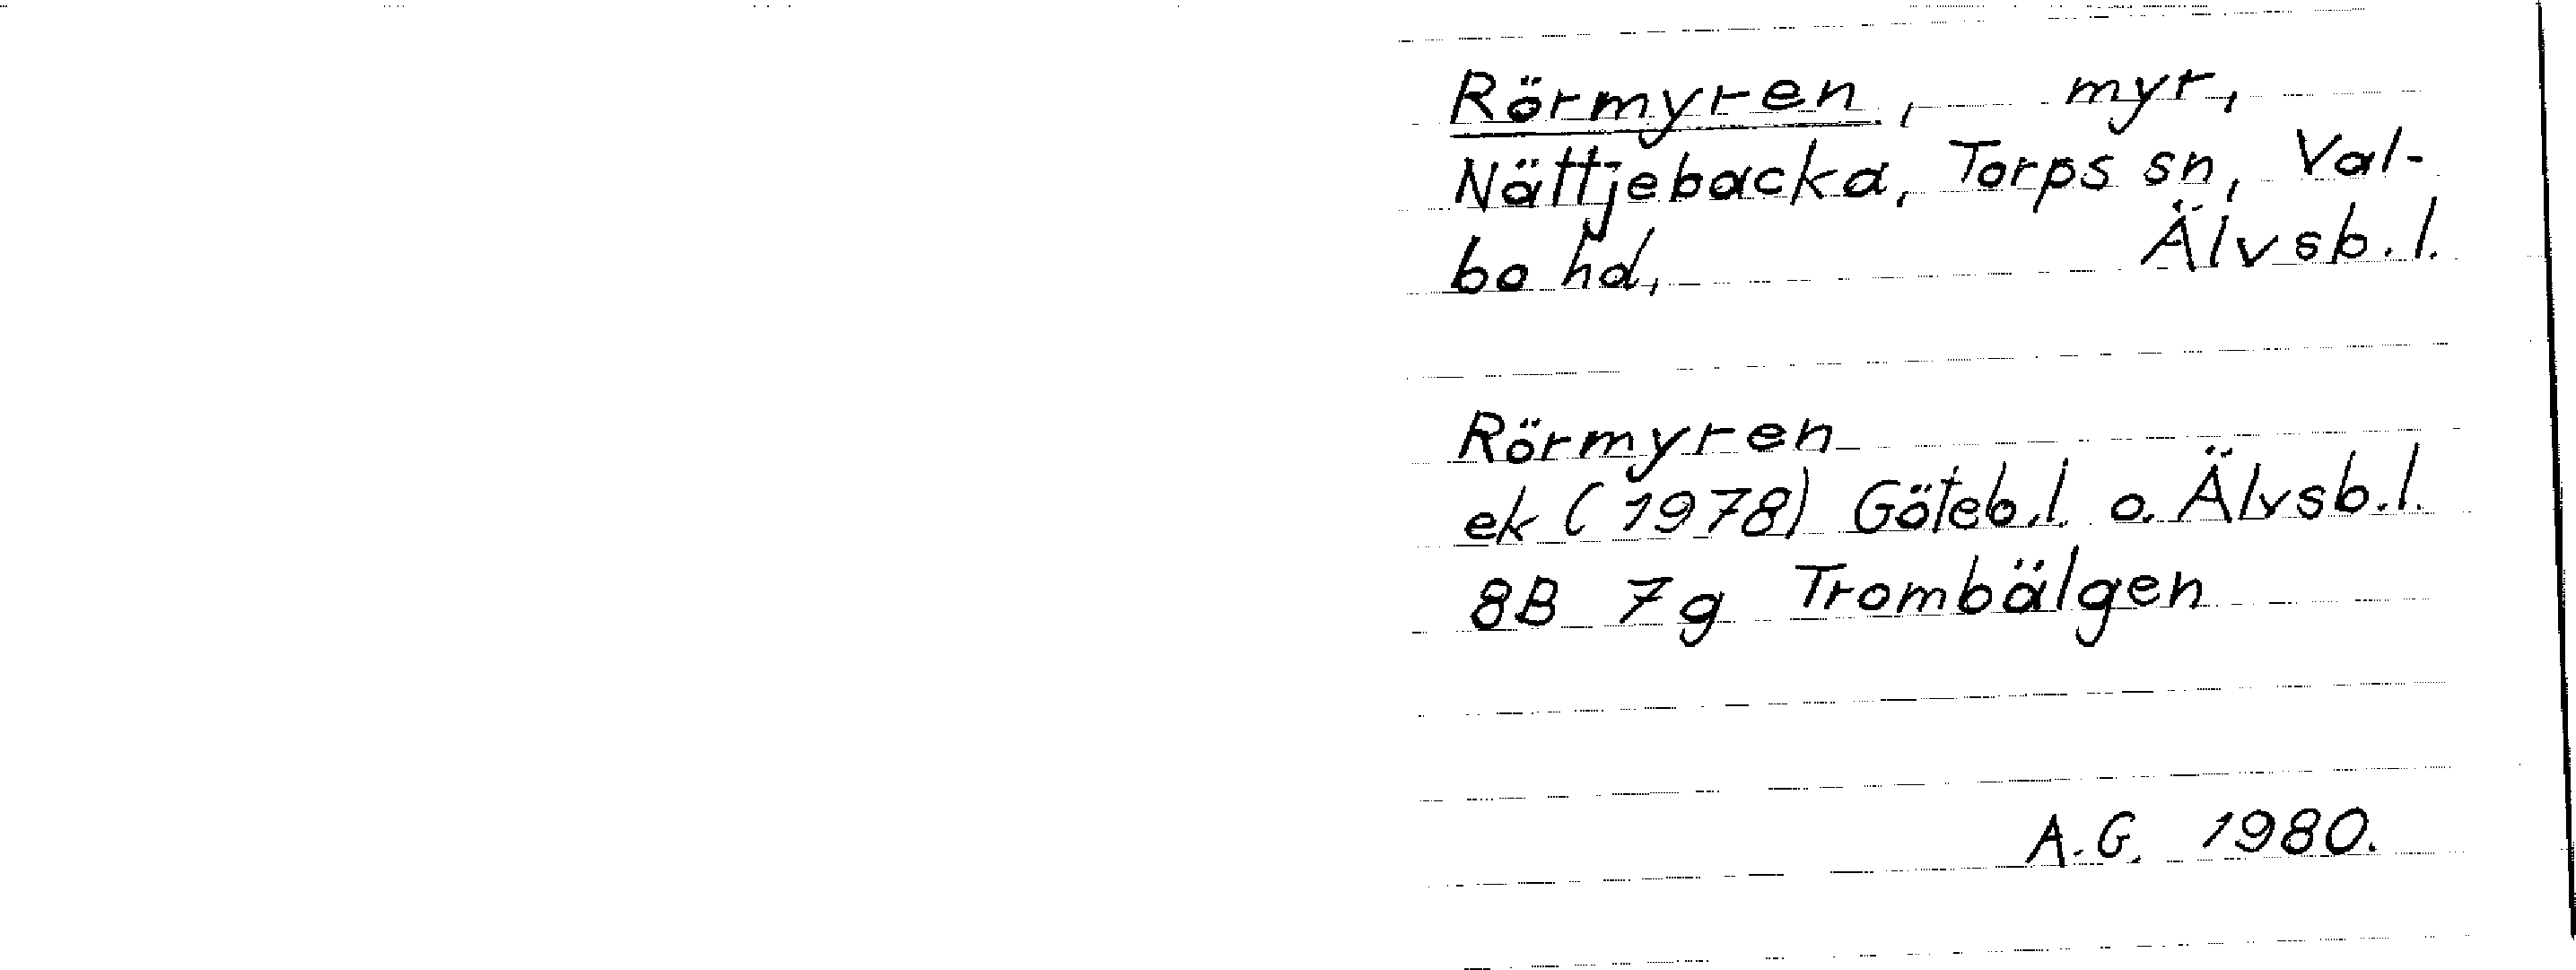 Rörmyren, myr,
Nättjebacka, Torps sn, Val-
bo hd, Älvsb.l.
Rörmyren
ek (1978) Göteb.l. o. Älvsb.l.
8B 7g Trombälgen
A.G. 1980.